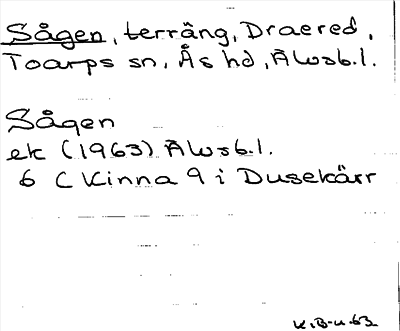 Sågen, terräng, Draered,
Toarps sn, Ås hd, Älvsb.l.
Sågen
ek (1963) Älvsb.l.
6 C Kinna 9 i Dusekärr
K.B-u.63